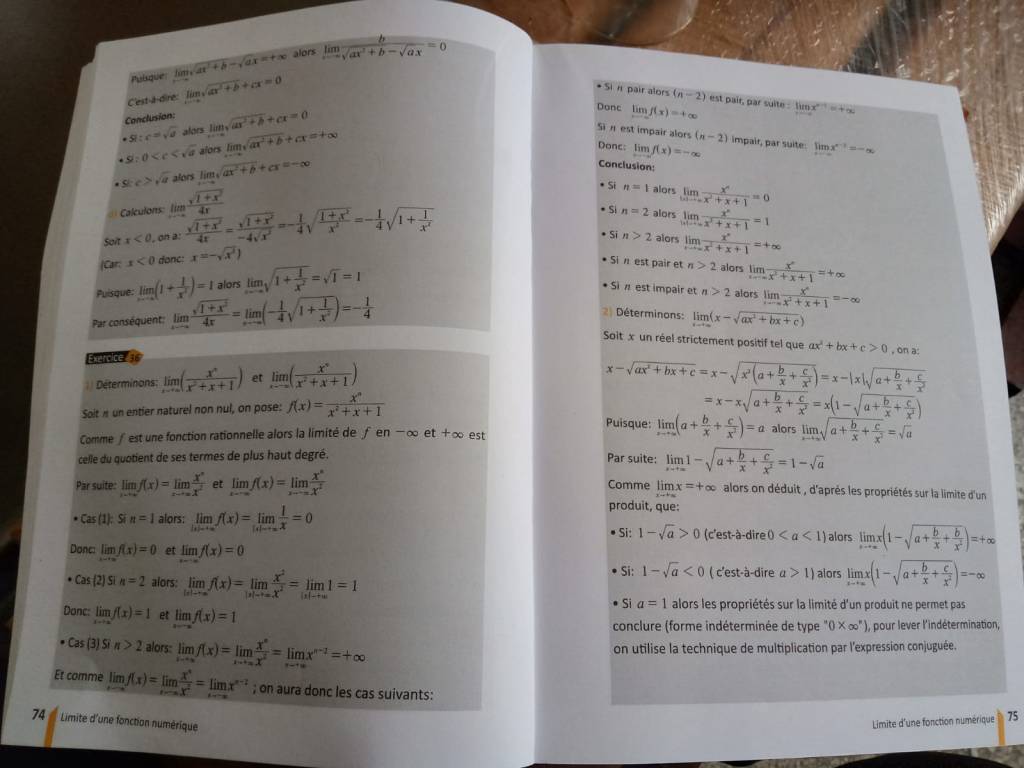 Puisque: lim_{x→-∞} √(ax²+b) - √a x = +∞ alors lim_{x→-∞} b/(√(ax²+b) - √a x) = 0
C'est-à-dire: lim_{x→-∞} √(ax²+b) + cx = 0
Conclusion:
• Si : c = √a alors lim_{x→-∞} √(ax²+b) + cx = 0
• Si : 0 < c < √a alors lim_{x→-∞} √(ax²+b) + cx = +∞
• Si: c > √a alors lim_{x→-∞} √(ax²+b) + cx = -∞
Calculons: lim_{x→-∞} √(1+x²)/4x
Soit x < 0, on a: √(1+x²)/4x = √(1+x²)/(-4√x²) = -1/4 √((1+x²)/x²) = -1/4 √(1 + 1/x²)
(Car: x < 0 donc: x = -√x²)
Puisque: lim_{x→-∞} (1 + 1/x²) = 1 alors lim_{x→-∞} √(1 + 1/x²) = √1 = 1
Par conséquent: lim_{x→-∞} √(1+x²)/4x = lim_{x→-∞} (-1/4 √(1 + 1/x²)) = -1/4
Exercice 36
1) Déterminons: lim_{x→+∞} (xⁿ/(x²+x+1)) et lim_{x→-∞} (xⁿ/(x²+x+1))
Soit n un entier naturel non nul, on pose: f(x) = xⁿ/(x²+x+1)
Comme f est une fonction rationnelle alors la limité de f en -∞ et +∞ est
celle du quotient de ses termes de plus haut degré.
Par suite: lim_{x→+∞} f(x) = lim_{x→+∞} xⁿ/x² et lim_{x→-∞} f(x) = lim_{x→-∞} xⁿ/x²
• Cas (1): Si n = 1 alors: lim_{|x|→+∞} f(x) = lim_{|x|→+∞} 1/x = 0
Donc: lim_{x→+∞} f(x) = 0 et lim_{x→-∞} f(x) = 0
• Cas (2) Si n = 2 alors: lim_{|x|→+∞} f(x) = lim_{|x|→+∞} x²/x² = lim_{|x|→+∞} 1 = 1
Donc: lim_{x→+∞} f(x) = 1 et lim_{x→-∞} f(x) = 1
• Cas (3) Si n > 2 alors: lim_{x→+∞} f(x) = lim_{x→+∞} xⁿ/x² = lim_{x→+∞} xⁿ⁻² = +∞
Et comme lim_{x→-∞} f(x) = lim_{x→-∞} xⁿ/x² = lim_{x→-∞} xⁿ⁻² ; on aura donc les cas suivants:
74 Limite d'une fonction numérique
• Si n pair alors (n-2) est pair, par suite : lim_{x→-∞} xⁿ⁻² = +∞
Donc lim_{x→-∞} f(x) = +∞
Si n est impair alors (n-2) impair, par suite: lim_{x→-∞} xⁿ⁻² = -∞
Donc: lim_{x→-∞} f(x) = -∞
Conclusion:
• Si n = 1 alors lim_{|x|→+∞} xⁿ/(x²+x+1) = 0
• Si n = 2 alors lim_{|x|→+∞} xⁿ/(x²+x+1) = 1
• Si n > 2 alors lim_{x→+∞} xⁿ/(x²+x+1) = +∞
• Si n est pair et n > 2 alors lim_{x→-∞} xⁿ/(x²+x+1) = +∞
• Si n est impair et n > 2 alors lim_{x→-∞} xⁿ/(x²+x+1) = -∞
2) Déterminons: lim_{x→+∞} (x - √(ax²+bx+c))
Soit x un réel strictement positif tel que ax²+bx+c > 0 , on a:
x - √(ax²+bx+c) = x - √(x²(a + b/x + c/x²)) = x - |x|√(a + b/x + c/x²)
= x - x√(a + b/x + c/x²) = x(1 - √(a + b/x + c/x²))
Puisque: lim_{x→+∞} (a + b/x + c/x²) = a alors lim_{x→+∞} √(a + b/x + c/x²) = √a
Par suite: lim_{x→+∞} 1 - √(a + b/x + c/x²) = 1 - √a
Comme lim_{x→+∞} x = +∞ alors on déduit , d'aprés les propriétés sur la limite d'un
produit, que:
• Si: 1 - √a > 0 (c'est-à-dire 0 < a < 1) alors lim_{x→+∞} x(1 - √(a + b/x + b/x²)) = +∞
• Si: 1 - √a < 0 ( c'est-à-dire a > 1) alors lim_{x→+∞} x(1 - √(a + b/x + c/x²)) = -∞
• Si a = 1 alors les propriétés sur la limité d'un produit ne permet pas
conclure (forme indéterminée de type "0 × ∞"), pour lever l'indétermination,
on utilise la technique de multiplication par l'expression conjuguée.
Limite d'une fonction numérique 75